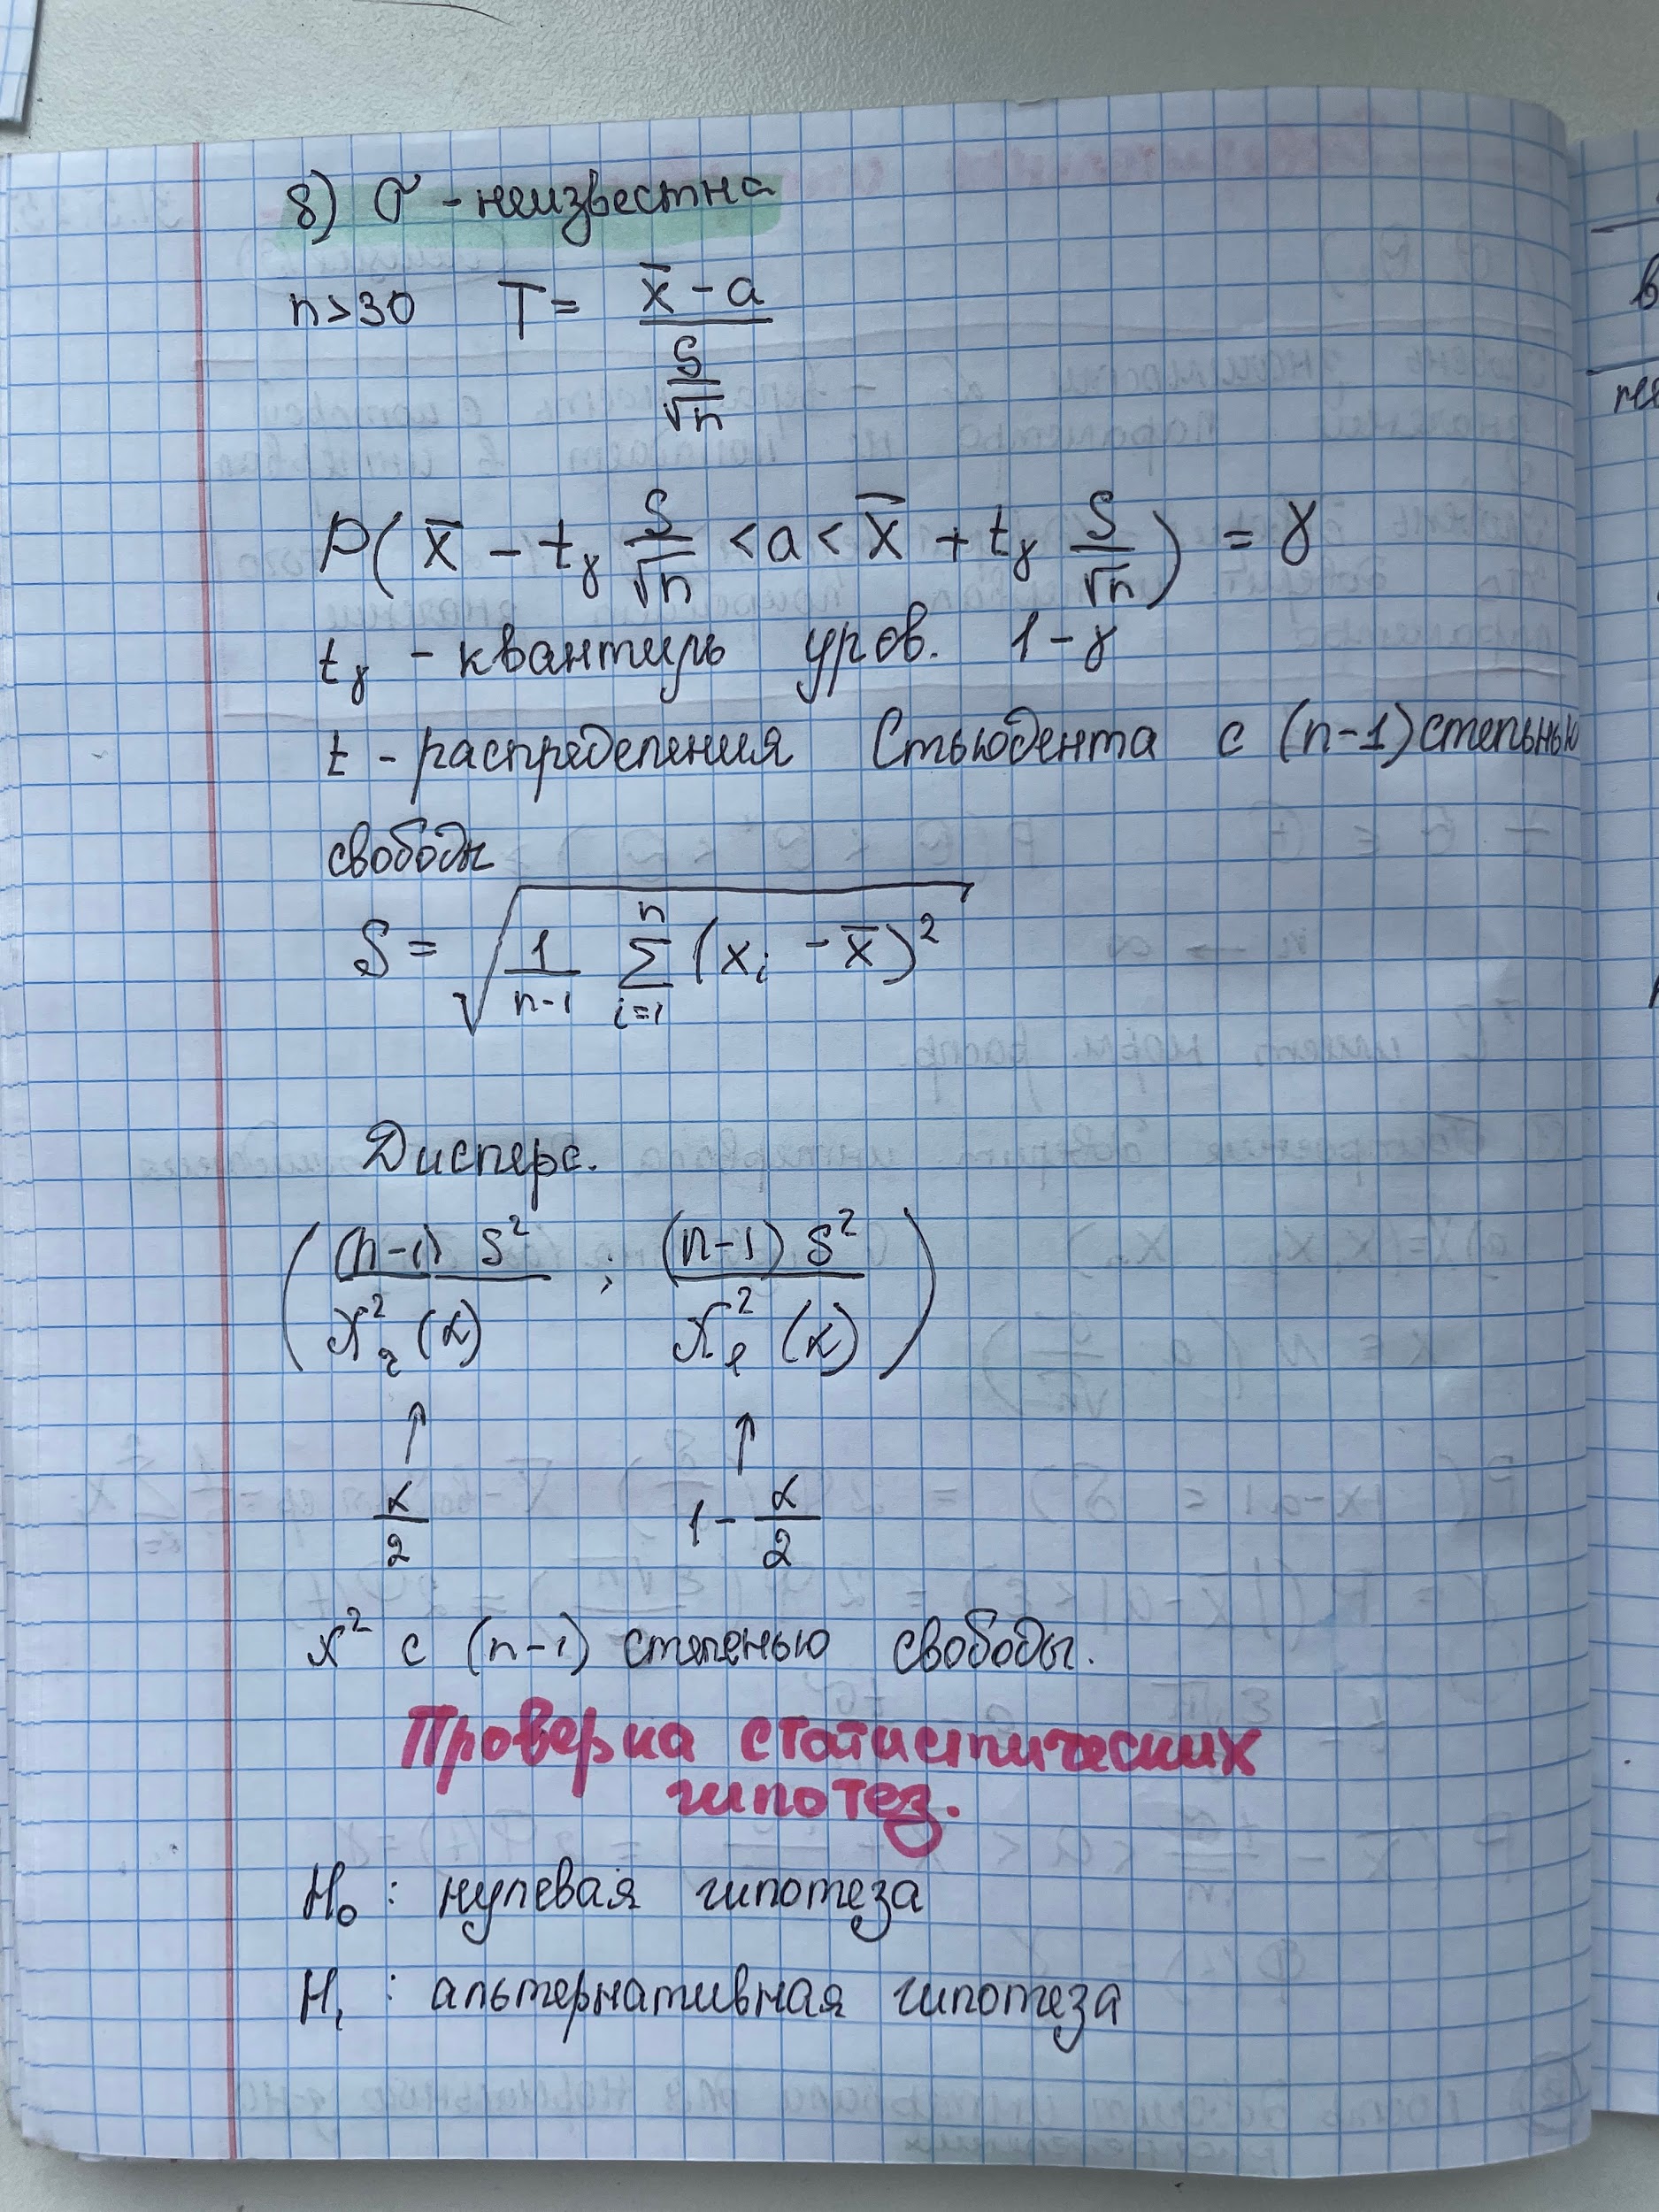 б) σ - неизвестна
n>30 T = (x̄ - a) / (S/√n)
P( x̄ - tᵧ S/√n < a < x̄ + tᵧ S/√n ) = γ
tᵧ - квантиль уров. 1-γ
t - распределения Стьюдента с (n-1) степенью
свободы
S = √( 1/(n-1) ∑ᵢ₌₁ⁿ (xᵢ - x̄)² )
Дисперс.
( (n-1) S² / χ²₂ (α) ; (n-1) S² / χ²₁ (α) )
↑ ↑
α/2 1 - α/2
χ² с (n-1) степенью свободы.
Проверка статистических
гипотез.
H₀ : нулевая гипотеза
H₁ : альтернативная гипотеза